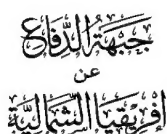 جبهة الدفاع
عن
إفريقيا الشمالية